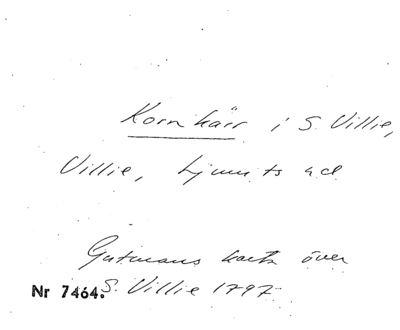 Kornkärr i S. Villie,
Villie, Ljunits hd
Gutmans karta över
Nr 7464. S. Villie 1797